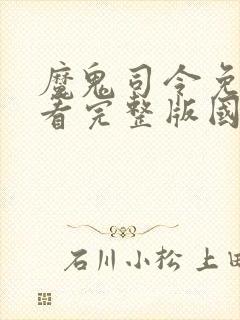 魔鬼司令免
看完整版國
石川小松 上田